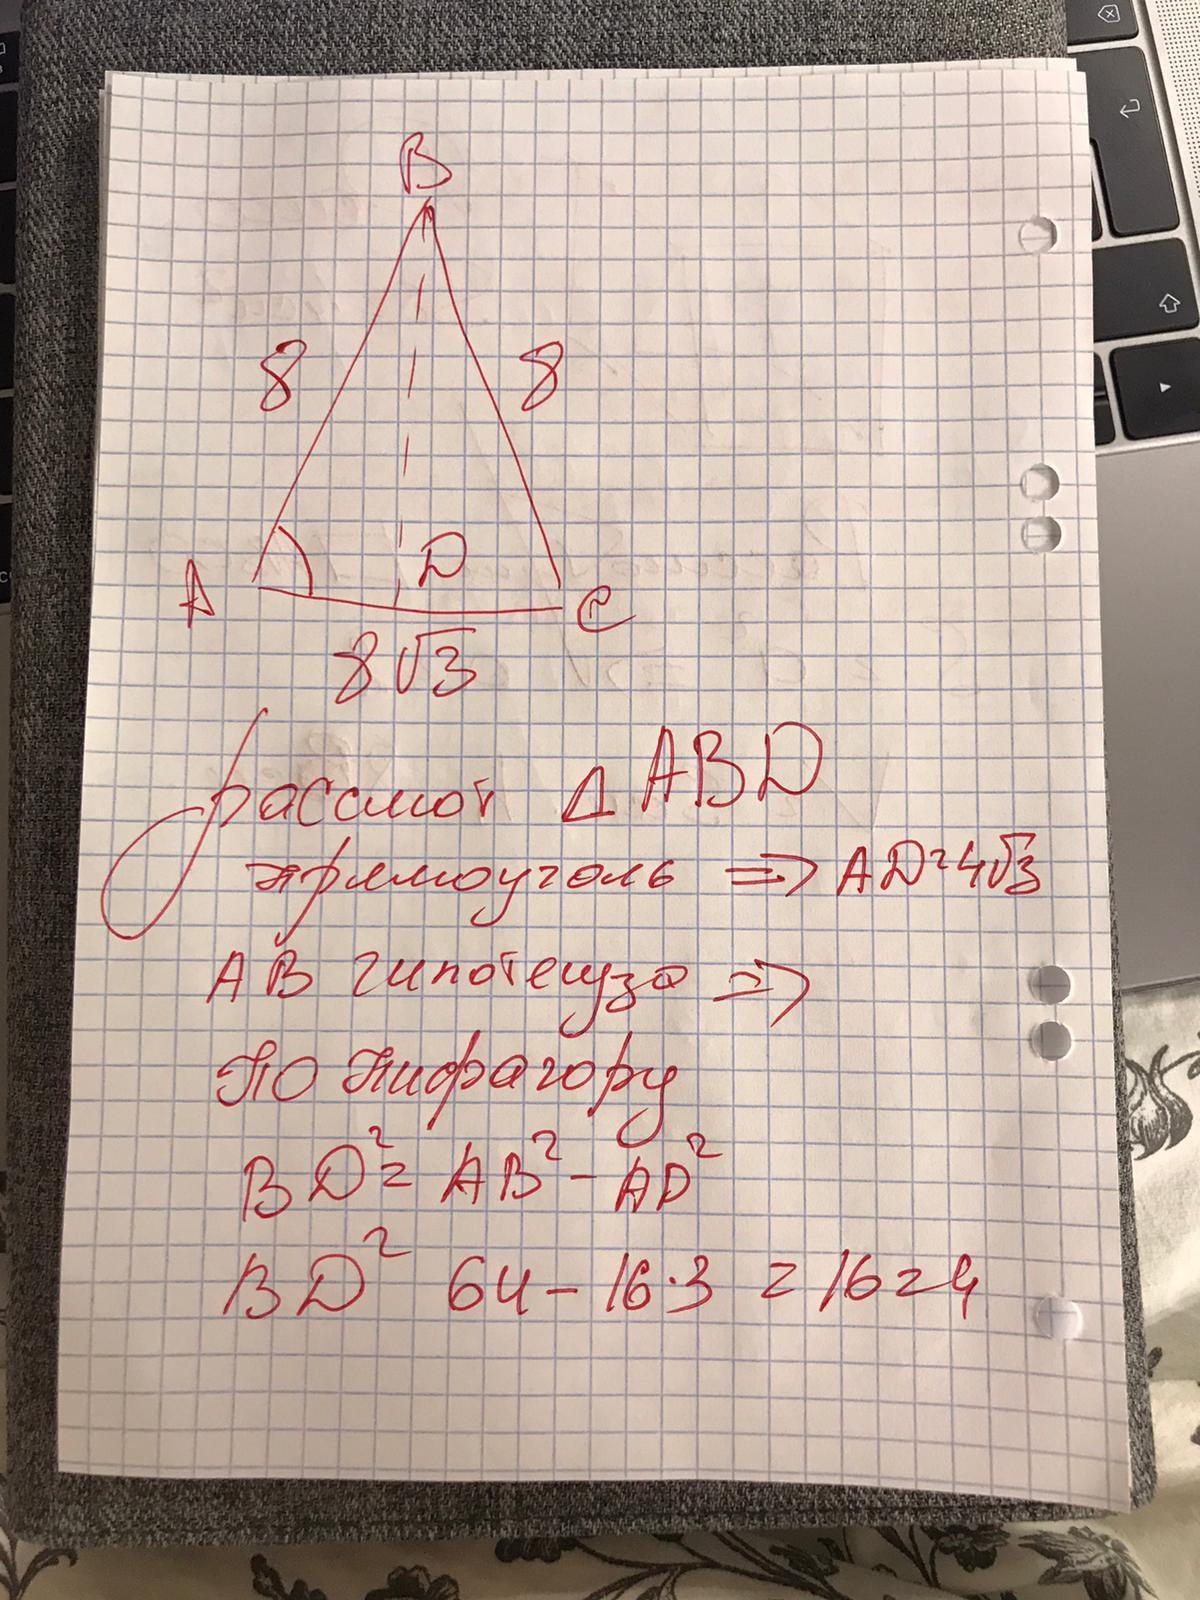 B
8 8
A D C
8√3
рассмот Δ ABD
прямоуголь => AD=4√3
AB гипотенуза =>
По Пифрагору
BD²= AB² - AD²
BD² 64 - 16·3 = 16 = 4